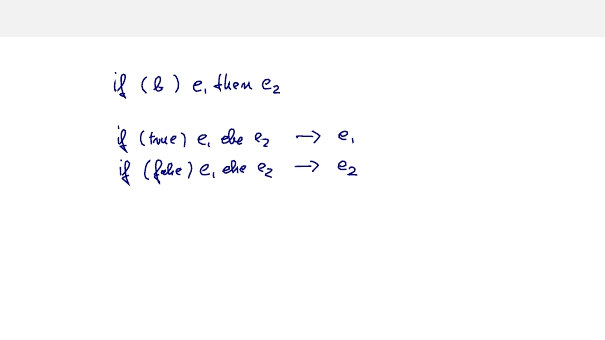 if (b) e₁ then e₂
if (true) e₁ else e₂ → e₁
if (false) e₁ else e₂ → e₂